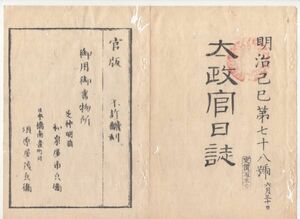 明治己巳第七十八號
六月三十日
太政官日誌
官版
不許翻刻
御用御書物所
芝神明前
和泉屋市兵衛
日本橋南壹町目
須原屋茂兵衛